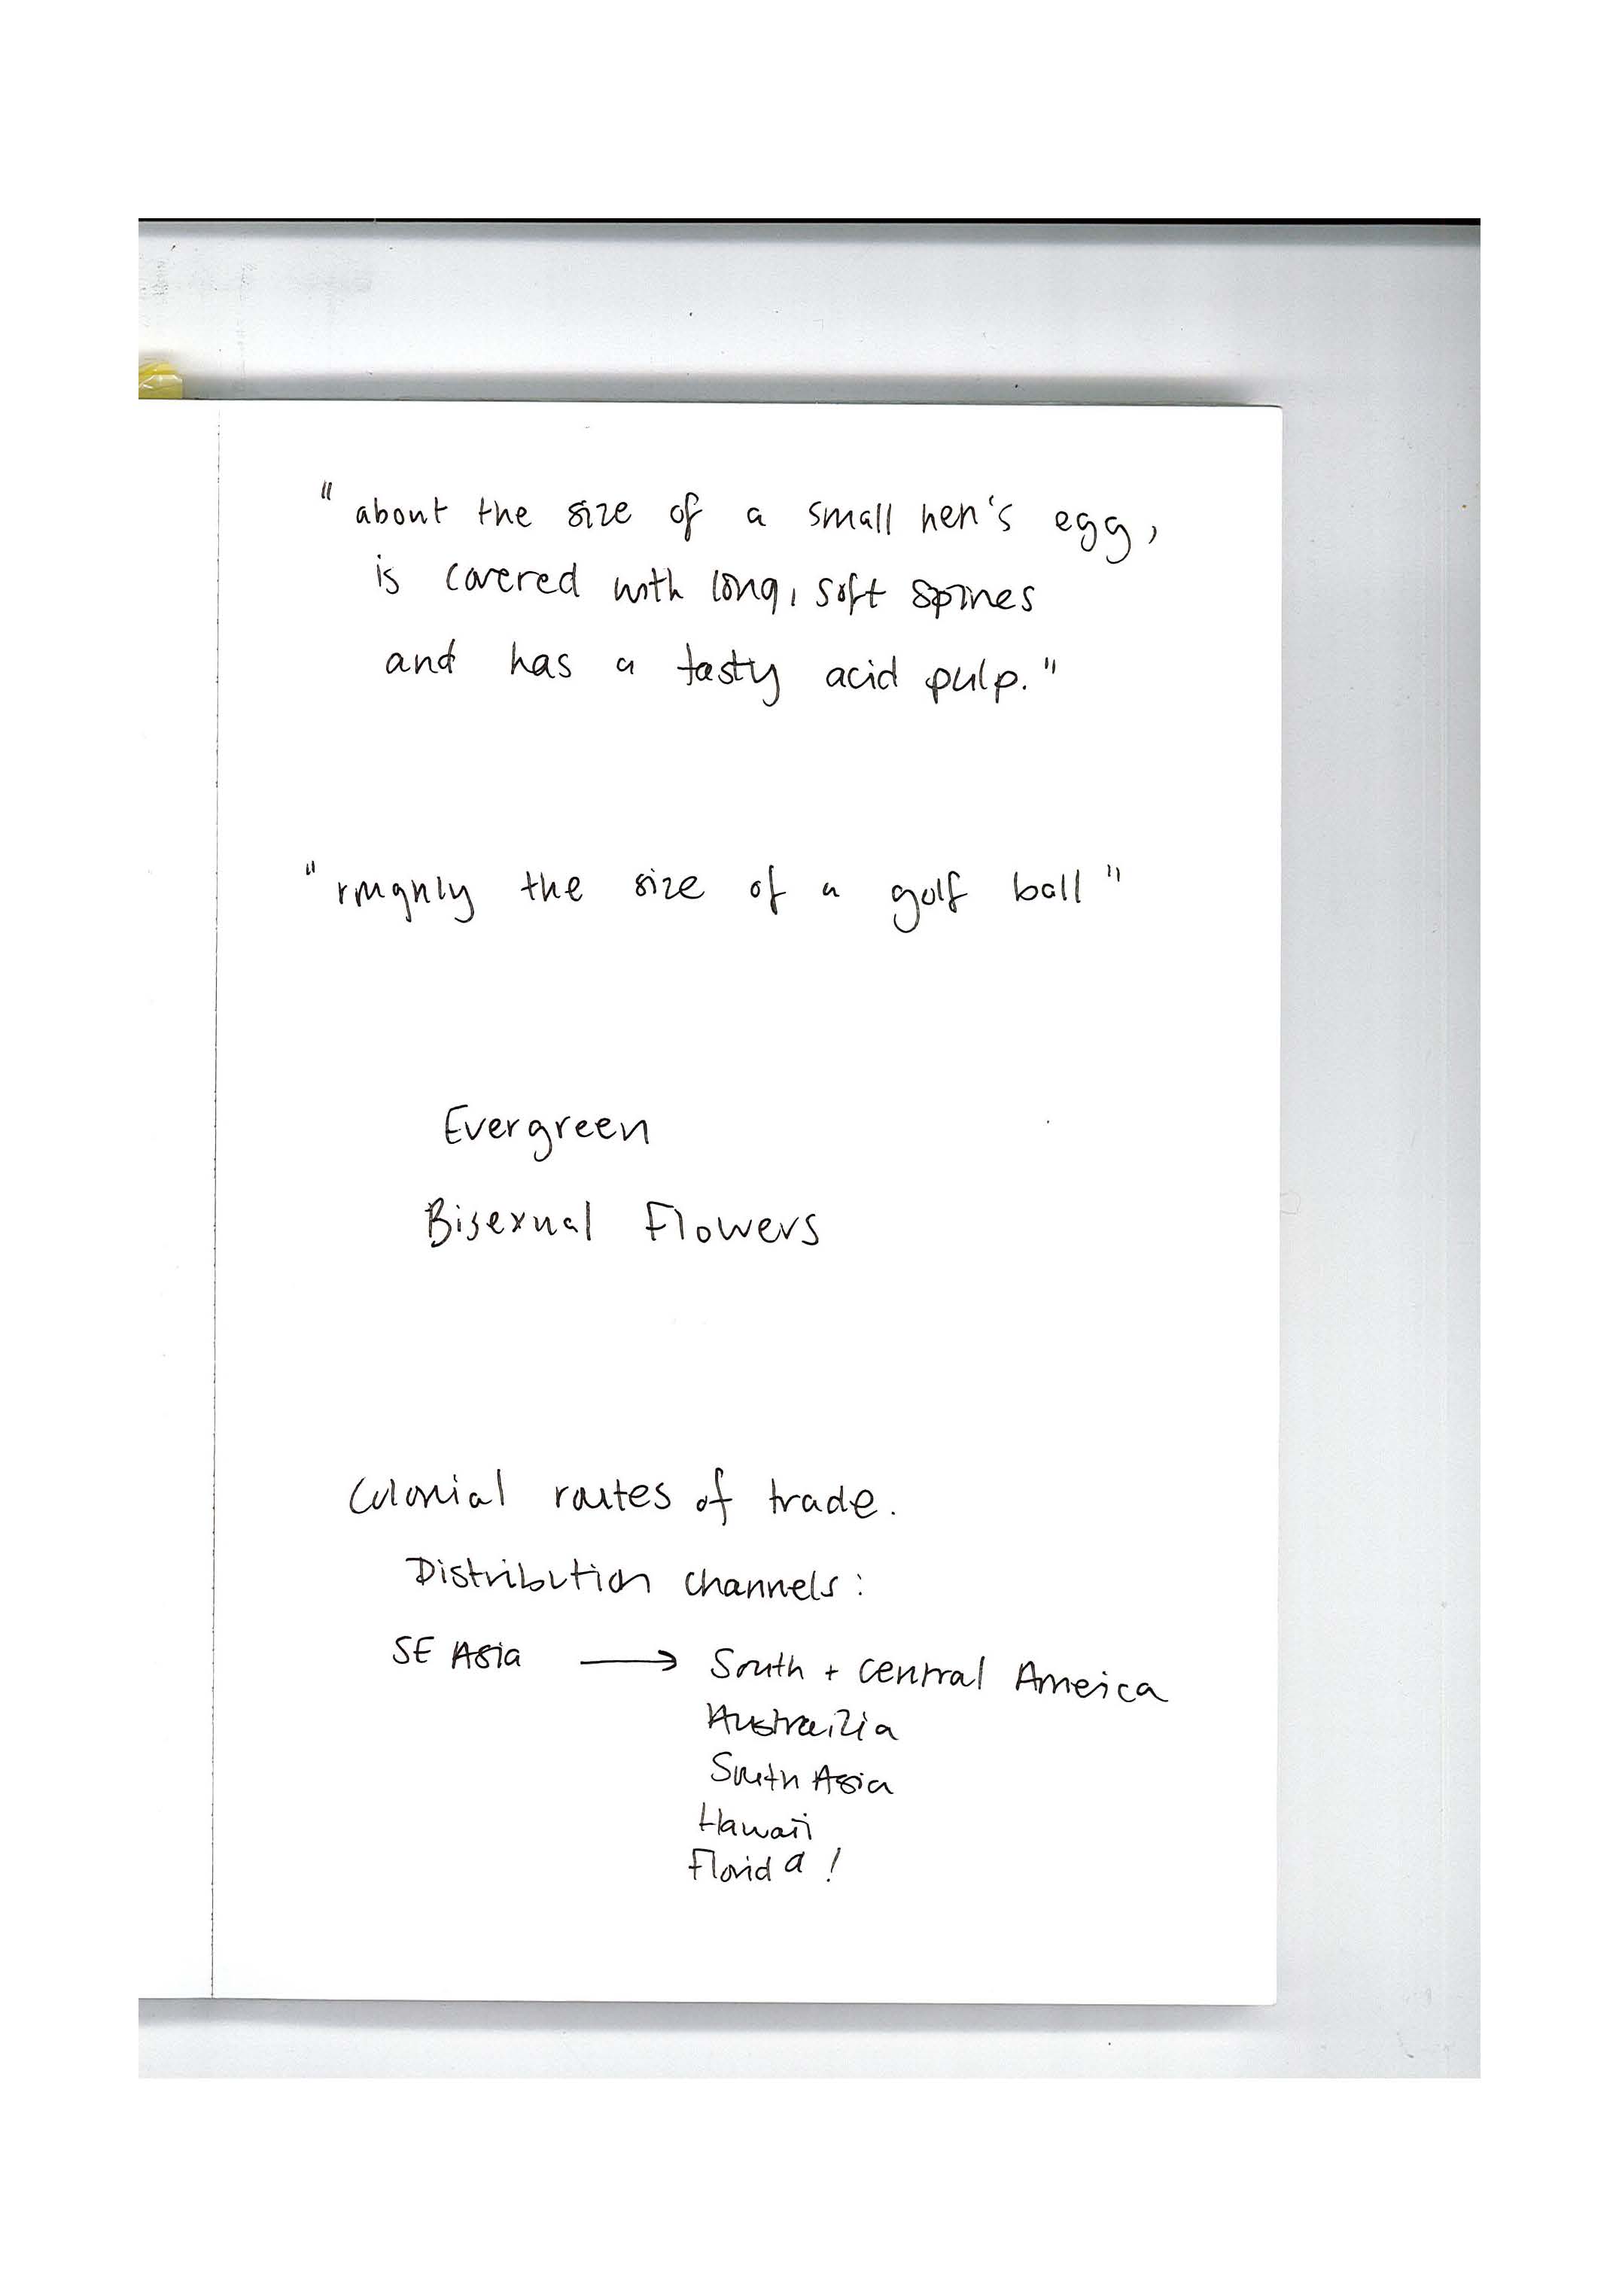 "about the size of a small hen's egg,
is covered with long, soft spines
and has a tasty acid pulp."
"roughly the size of a golf ball"
Evergreen
Bisexual Flowers
Colonial routes of trade.
Distribution channels:
SE Asia → South + Central Ameica
Austrailia
South Asia
Hawaii
Florida!